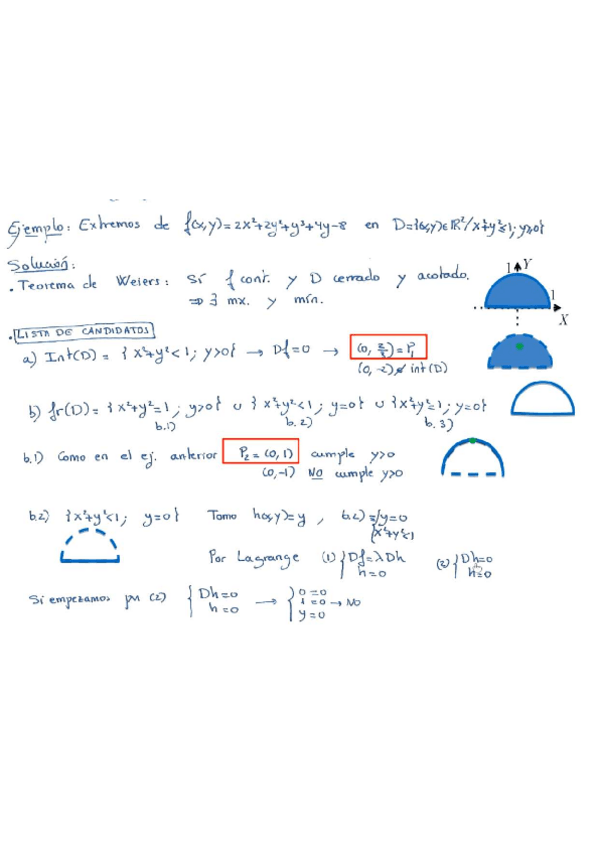 Ejemplo: Extremos de f(x,y)=2x²+2y²+y³+4y-8 en D={(x,y)∈ℝ²/x²+y²≤1; y≥0}
Solución:
. Teorema de Weiers: Sí f cont. y D cerrado y acotado.
⇒ ∃ mx. y mín.
1 Y
1
X
. LISTA DE CANDIDATOS
a) Int(D) = { x²+y²<1; y>0} → Df=0 → (0, 2/3) = P₁
(0,-2) ∉ int(D)
b) fr(D) = { x²+y²=1; y>0} ∪ { x²+y²<1; y=0} ∪ { x²+y²=1; y=0}
b.1) b.2) b.3)
b.1) Como en el ej. anterior P₂ = (0,1) cumple y>0
(0,-1) NO cumple y>0
b.2) {x²+y²<1; y=0} Tomo h(x,y)=y , b.2) = {y=0
x²+y²<1
Por Lagrange (1) { Df=λDh (2) { Dh=0
h=0 h=0
Si empezamos por (2) { Dh=0 → { 0=0
h=0 1=0 → NO
y=0